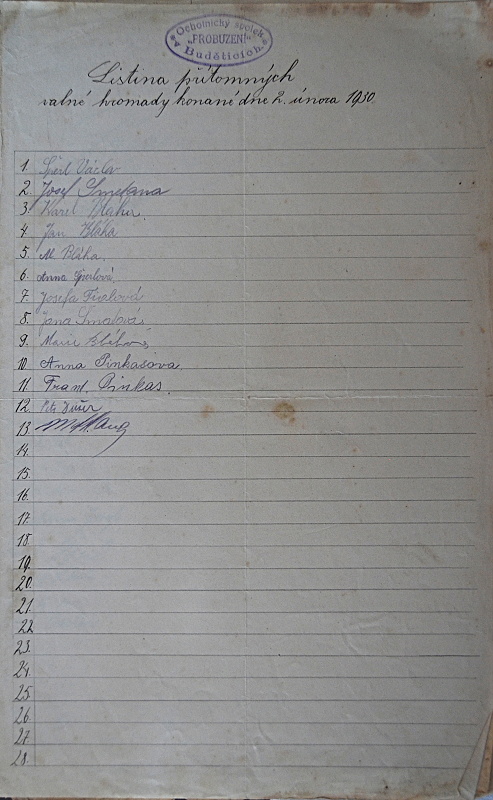 Ochotnický spolek
„PROBUZENÍ“
v Buděticích.
Listina přítomných
valné hromady konané dne 2. února 1930.
1. Šperl Václav
2. Josef Smetana
3. Karel Bláha
4. Jan Bláha
5. Al. Bláha
6. Anna Šperlová
7. Josefa
8. Jana
9. Marie Bláhová
10. Anna Pinkasova
11. Frant. Pinkas.
12. Petr
13.
14.
15.
16.
17.
18.
19.
20.
21.
22
23.
24.
25.
26.
27.
28.